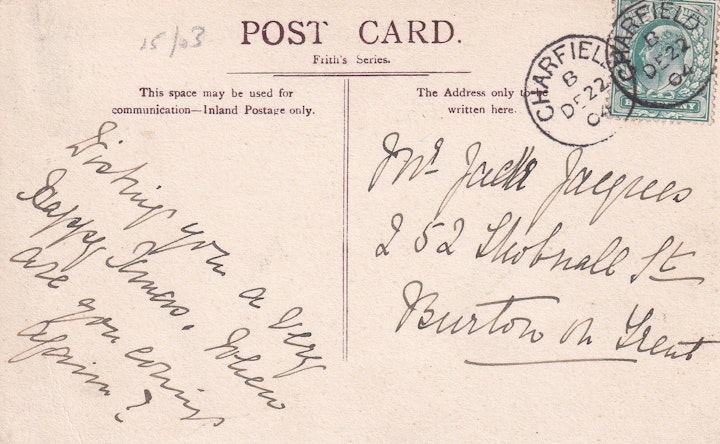 15/03
POST CARD.
Frith's Series.
This space may be used for
communication—Inland Postage only.
The Address only to be
written here.
CHARFIELD
B
DE 22
04
CHARFIELD
B
DE 22
04
Wishing you a very
Happy Xmas. When
are you coming
again?
Mr Jack Jacques
252 Shobnall St
Burton on Trent